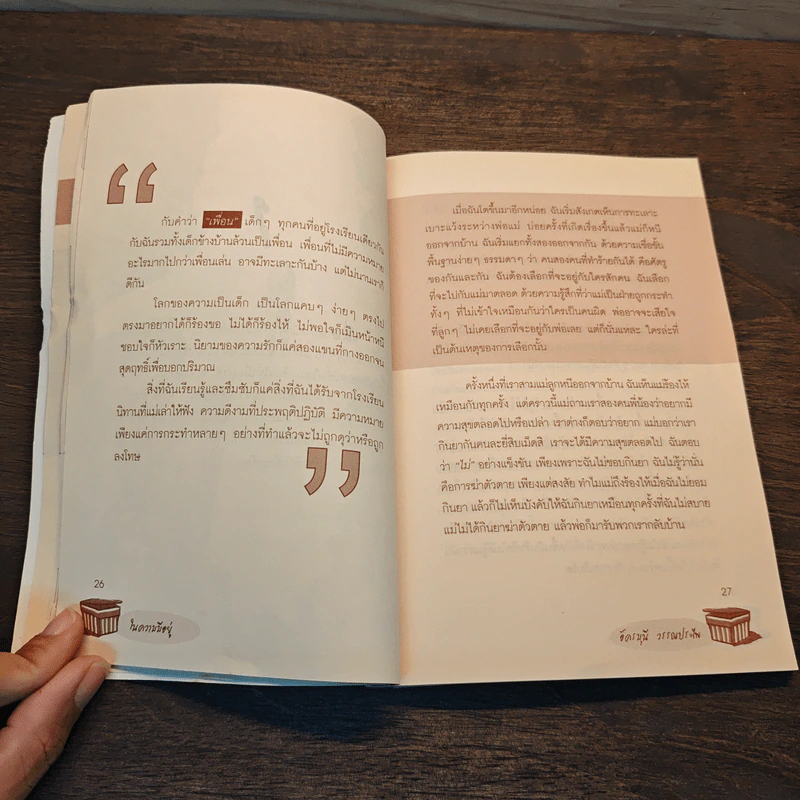 กับคำว่า "เพื่อน" เด็กๆ ทุกคนที่อยู่โรงเรียนเดียวกัน
กับฉันรวมทั้งเด็กข้างบ้านล้วนเป็นเพื่อน เพื่อนที่ไม่มีความหมาย
อะไรมากไปกว่าเพื่อนเล่น อาจมีทะเลาะกันบ้าง แต่ไม่นานเราก็
ดีกัน
โลกของความเป็นเด็ก เป็นโลกแคบๆ ง่ายๆ ตรงไป
ตรงมาอยากได้ก็ร้องขอ ไม่ได้ก็ร้องไห้ ไม่พอใจก็เมินหน้าหนี
ชอบใจก็หัวเราะ นิยามของความรักก็แค่สองแขนที่กางออกจน
สุดฤทธิ์เพื่อบอกปริมาณ
สิ่งที่ฉันเรียนรู้และซึมซับก็แค่สิ่งที่ฉันได้รับจากโรงเรียน
นิทานที่แม่เล่าให้ฟัง ความดีงามที่ประพฤติปฏิบัติ มีความหมาย
เพียงแค่การกระทำหลายๆ อย่างที่ทำแล้วจะไม่ถูกดุว่าหรือถูก
ลงโทษ
26
ในความมีอยู่
เมื่อฉันโตขึ้นมาอีกหน่อย ฉันเริ่มสังเกตเห็นการทะเลาะ
เบาะแว้งระหว่างพ่อแม่ บ่อยครั้งที่เกิดเรื่องขึ้นแล้วแม่ก็หนี
ออกจากบ้าน ฉันเริ่มแยกทั้งสองออกจากกัน ด้วยความเชื่อขั้น
พื้นฐานง่ายๆ ธรรมดาๆ ว่า คนสองคนที่ทำร้ายกันได้ คือศัตรู
ของกันและกัน ฉันต้องเลือกที่จะอยู่กับใครสักคน ฉันเลือก
ที่จะไปกับแม่มาตลอด ด้วยความรู้สึกที่ว่าแม่เป็นฝ่ายถูกกระทำ
ทั้งๆ ที่ไม่เข้าใจเหมือนกันว่าใครเป็นคนผิด พ่ออาจจะเสียใจ
ที่ลูกๆ ไม่เคยเลือกที่จะอยู่กับพ่อเลย แต่ก็นั่นแหละ ใครล่ะที่
เป็นต้นเหตุของการเลือกนั้น
ครั้งหนึ่งที่เราสามแม่ลูกหนีออกจากบ้าน ฉันเห็นแม่ร้องไห้
เหมือนกับทุกครั้ง แต่คราวนี้แม่ถามเราสองคนพี่น้องว่าอยากมี
ความสุขตลอดไปหรือเปล่า เราต่างก็ตอบว่าอยาก แม่บอกว่าเรา
กินยากันคนละยี่สิบเม็ดสิ เราจะได้มีความสุขตลอดไป ฉันตอบ
ว่า "ไม่" อย่างแข็งขัน เพียงเพราะฉันไม่ชอบกินยา ฉันไม่รู้ว่านั่น
คือการฆ่าตัวตาย เพียงแต่สงสัย ทำไมแม่ถึงร้องไห้เมื่อฉันไม่ยอม
กินยา แล้วก็ไม่เห็นบังคับให้ฉันกินยาเหมือนทุกครั้งที่ฉันไม่สบาย
แม่ไม่ได้กินยาฆ่าตัวตาย แล้วพ่อก็มารับพวกเรากลับบ้าน
27
อัครมุนี วรรณประไพ